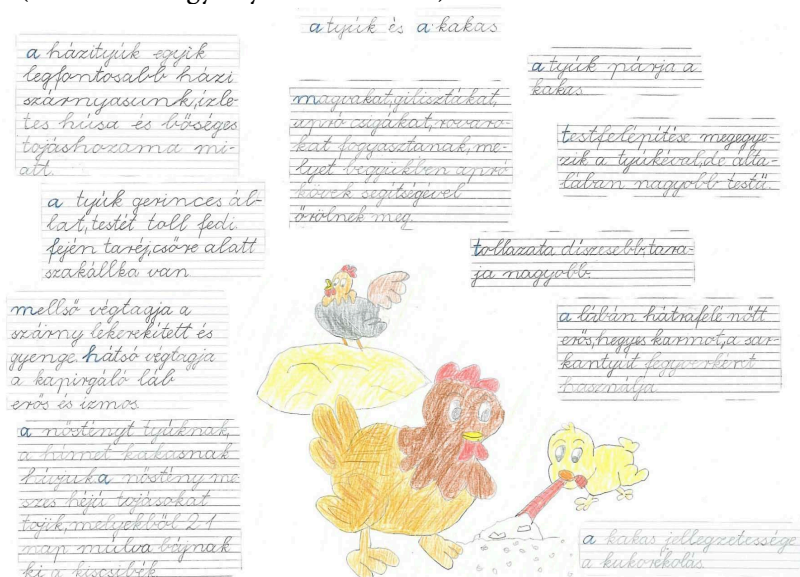 a tyúk és a kakas
a házityúk egyik
legfontosabb házi
szárnyasunk,ízle
tes húsa és bőséges
tojáshozama mi-
att.
a tyúk gerinces ál-
lat,testét toll fedi
fején taréj,csőre alatt
szakállka van
mellső végtagja a
szárny lekerekített és
gyenge. hátsó végtagja
a kapirgáló láb
erős és izmos
a nőstényt tyúknak,
a hímet kakasnak
hívjuk a nőstény me
szes héjú tojásokat
tojik,melyekből 21
nap múlva bújnak
ki a kiscsibék
magvakat,gilisztákat,
apró csigákat,rovaro-
kat fogyasztanak,me-
lyet begyükben apró
kövek segítségével
őrölnek meg.
a tyúk párja a
kakas
testfelépítése megegye-
zik a tyúkéval,de álta-
lában nagyobb testű.
tollazata díszesebb,tara-
ja nagyobb.
a lábán hátrafelé nőtt
erős,hegyes karmot,a sar-
kantyút fegyverként
használja
a kakas jellegzetessége
a kukorékolás